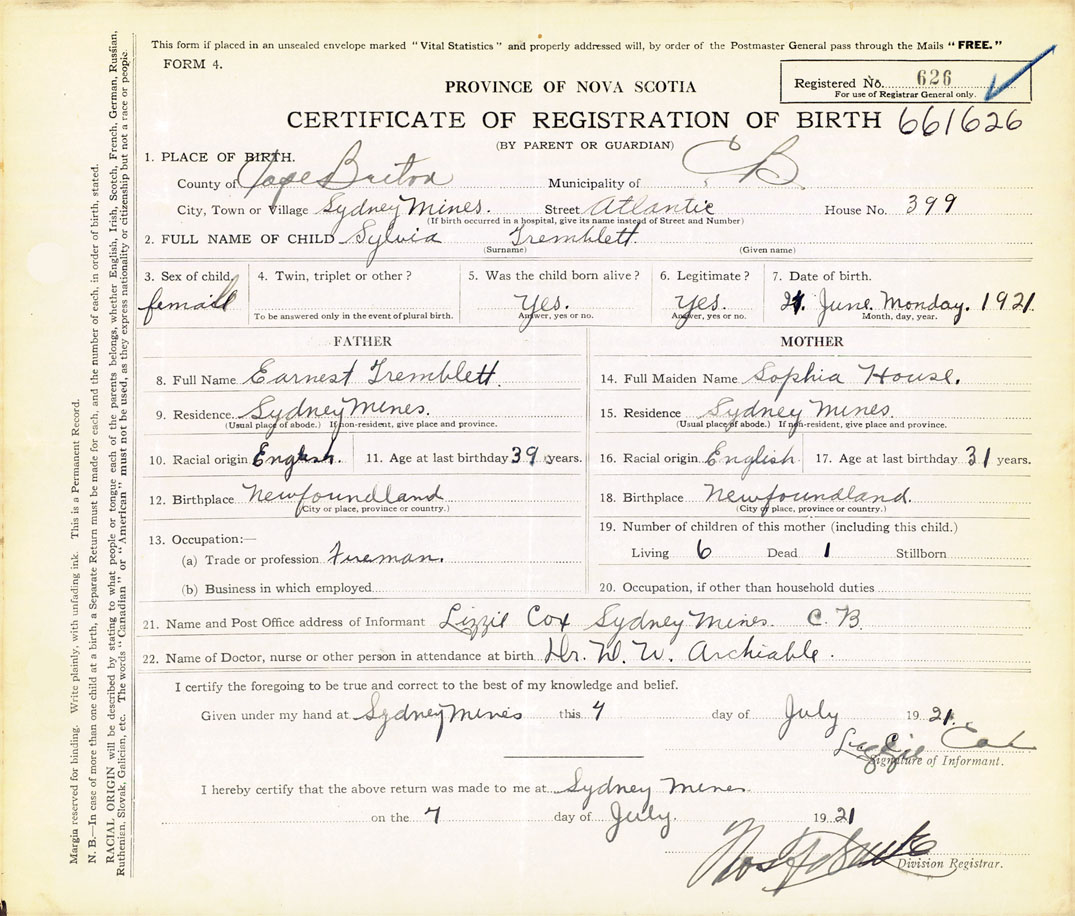 This form if placed in an unsealed envelope marked "Vital Statistics" and properly addressed will, by order of the Postmaster General pass through the Mails "FREE."
FORM 4.
Registered No. 626
For use of Registrar General only.
PROVINCE OF NOVA SCOTIA
CERTIFICATE OF REGISTRATION OF BIRTH 661626
(BY PARENT OR GUARDIAN)
1. PLACE OF BIRTH.
County of Cape Breton Municipality of C B
City, Town or Village Sydney Mines. Street Atlantic House No. 399
(If birth occurred in a hospital, give its name instead of Street and Number)
2. FULL NAME OF CHILD Sylvia Tremblett.
(Surname) (Given name)
3. Sex of child. 4. Twin, triplet or other? 5. Was the child born alive? 6. Legitimate? 7. Date of birth.
female Yes. Yes. June. Monday. 1921.
To be answered only in the event of plural birth. Answer, yes or no. Answer, yes or no. Month, day, year.
FATHER MOTHER
8. Full Name Earnest Tremblett. 14. Full Maiden Name Sophia House.
9. Residence. Sydney Mines. 15. Residence Sydney Mines.
(Usual place of abode.) If non-resident, give place and province. (Usual place of abode.) If non-resident, give place and province.
10. Racial origin English. 11. Age at last birthday 39 years. 16. Racial origin English 17. Age at last birthday 31 years.
12. Birthplace Newfoundland 18. Birthplace Newfoundland.
(City or place, province or country.) (City or place, province or country.)
13. Occupation:— 19. Number of children of this mother (including this child.)
(a) Trade or profession Fireman. Living 6 Dead 1 Stillborn
(b) Business in which employed 20. Occupation, if other than household duties
21. Name and Post Office address of Informant Lizzie Cox Sydney Mines. C. B.
22. Name of Doctor, nurse or other person in attendance at birth Dr. W. W. Archiable.
I certify the foregoing to be true and correct to the best of my knowledge and belief.
Given under my hand at Sydney Mines this 4 day of July 1921.
Lizzie Cox
Signature of Informant.
I hereby certify that the above return was made to me at Sydney Mines
on the 4 day of July. 1921
Division Registrar.
Margin reserved for binding. Write plainly, with unfading ink. This is a Permanent Record.
N. B.—In case of more than one child at a birth, a Separate Return must be made for each, and the number of each, in order of birth, stated.
RACIAL ORIGIN will be described by stating to what people or tongue each of the parents belongs, whether English, Irish, Scotch, French, German, Russian,
Ruthenian, Slovak, Galician, etc. The words "Canadian" or "American" must not be used, as they express nationality or citizenship but not a race or people.